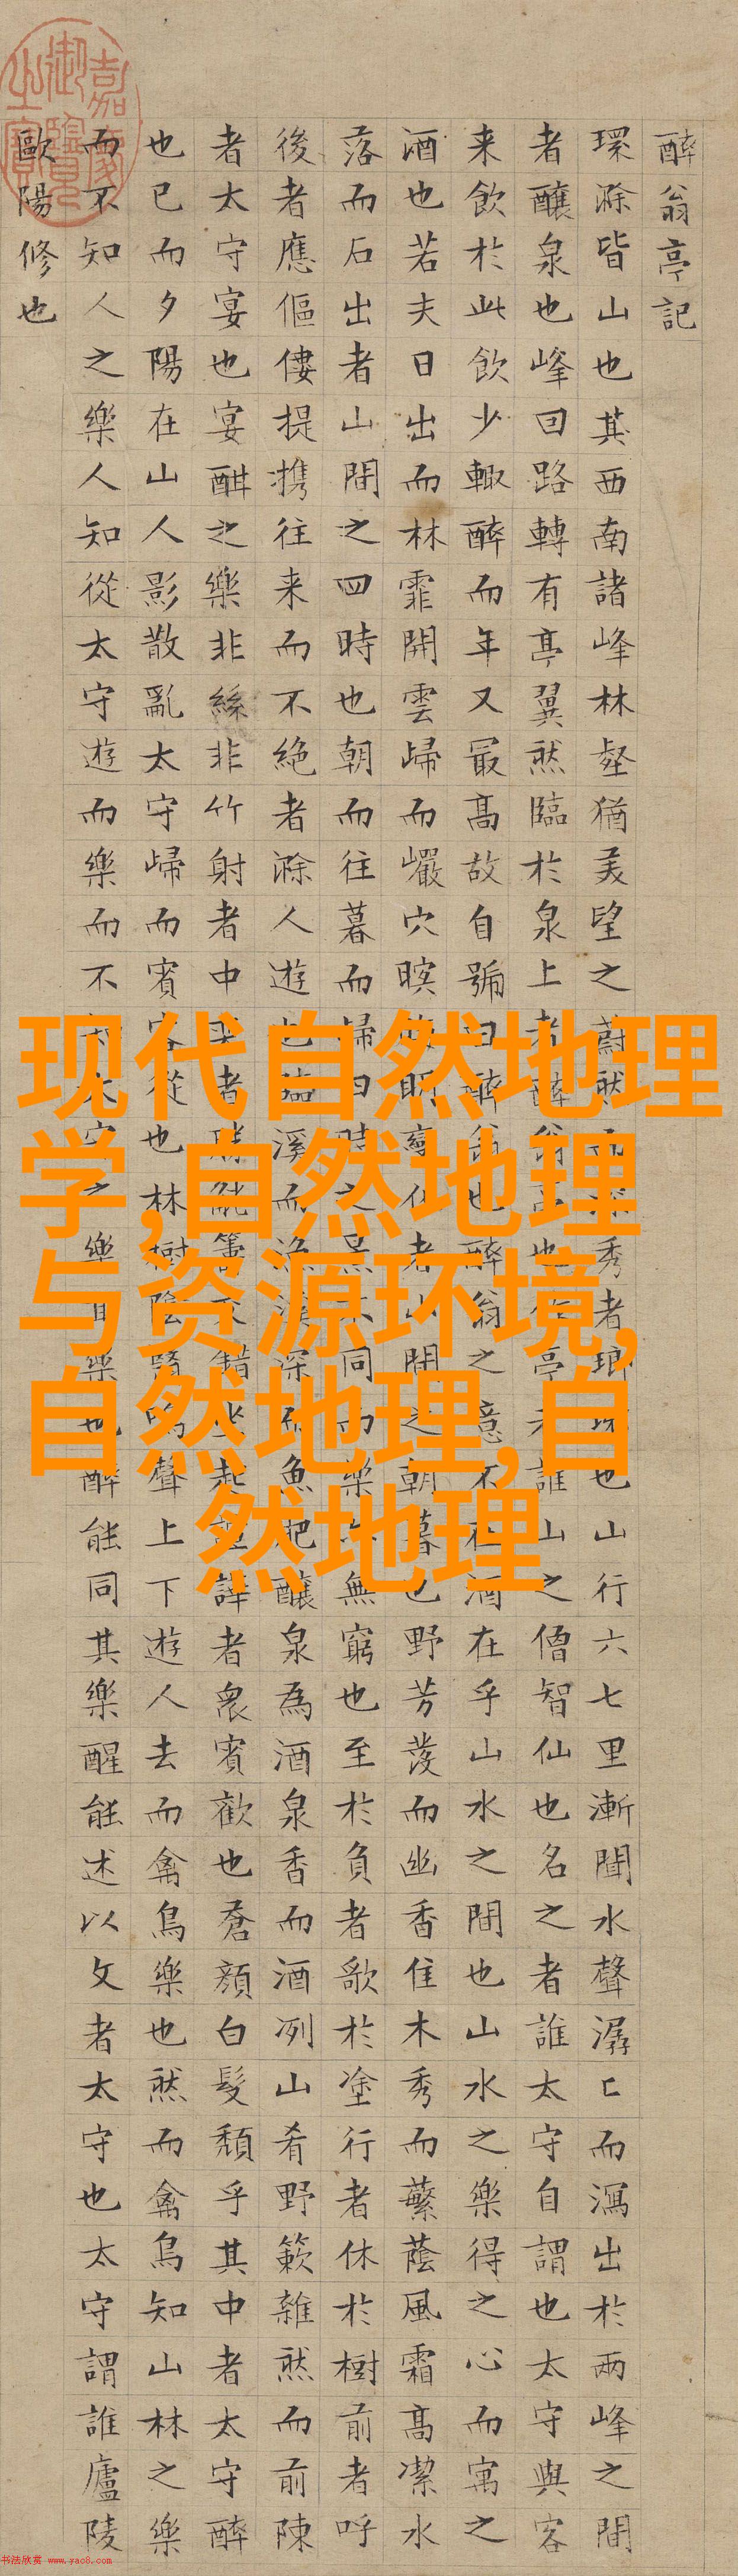 醉翁亭記
環滁皆山也其西南諸峰林壑猶美望之蔚然而深秀者瑯琊也山行六七里漸聞水聲潺匕而瀉出於兩峰之間
者釀泉也峰回路轉有亭翼然臨於泉上者醉翁亭也作亭者誰山之僧智仙也名之者誰太守自謂也太守與客
来飲於此飲少輒醉而年又最高故自號曰醉翁也醉翁之意不在酒在乎山水之間也山水之樂得之心而寓之
酒也若夫日出而林霏開雲歸而巖穴暝晦明變化者山間之朝暮也野芳發而幽香佳木秀而蘩蔭風霜高潔水
落而石出者山間之四時也朝而往暮而歸四時之景不同而樂亦無窮也至於負者歌於塗行者休於樹前者呼
後者應傴僂提携往来而不絶者滁人遊也臨溪而漁溪深而魚肥釀泉為酒泉香而酒冽山肴野蔌雜然而前陳
者太守宴也宴酣之樂非絲非竹射者中奕者勝觥籌交錯坐起諠譁者衆賓歡也蒼顏白髮頽乎其中者太守醉
也已而夕陽在山人影散亂太守歸而賓客從也林樹陰翳鳴聲上下遊人去而禽鳥樂也然而禽鳥知山林之樂
而不知人之樂人知從太守遊而樂而不知太守之樂其樂也醉能同其樂醒能述以文者太守也太守謂誰廬陵
歐陽修也
嘉慶御覽之寶
现代自然地理
学,自然地理
与资源环境,
自然地理,自
然地理
书法欣赏 www.yac8.com